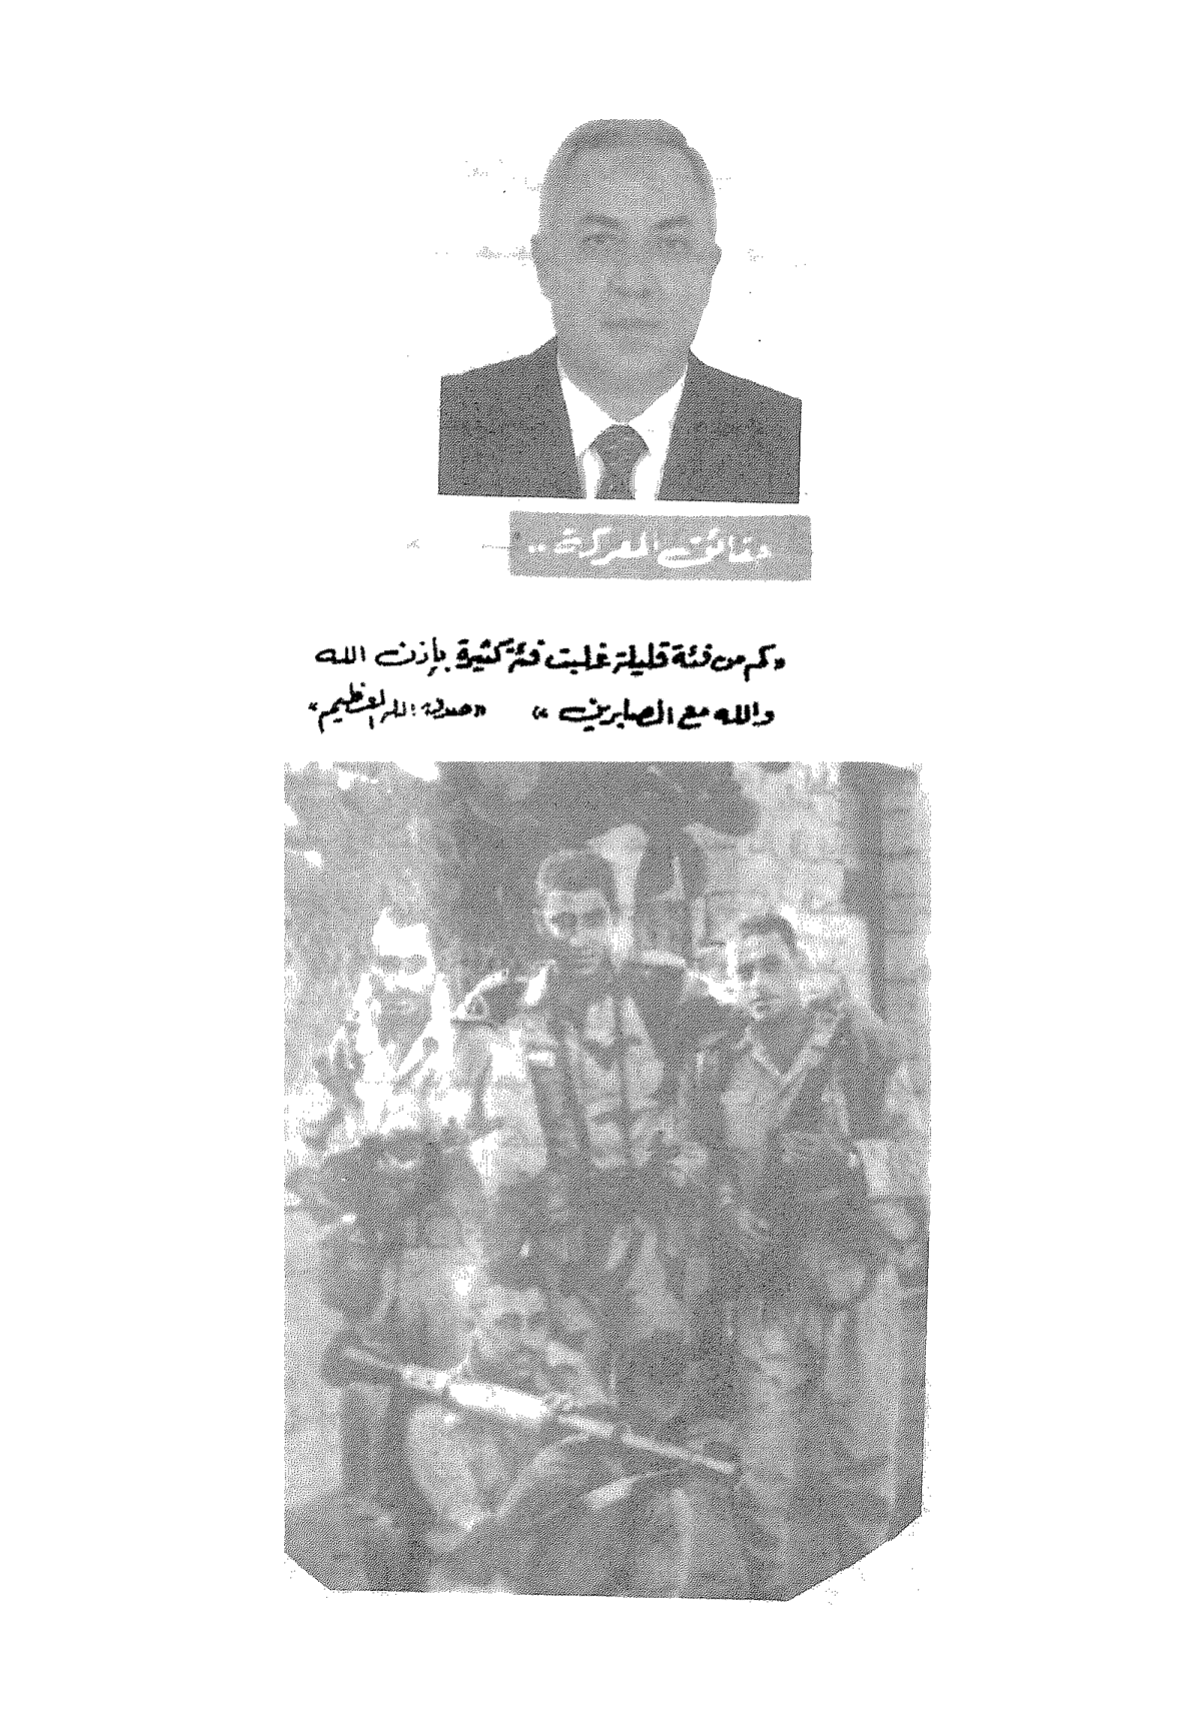 حقائق المعركة ..
«كم من فئة قليلة غلبت فئة كثيرة بإذن الله
والله مع الصابرين» «صدق الله العظيم»